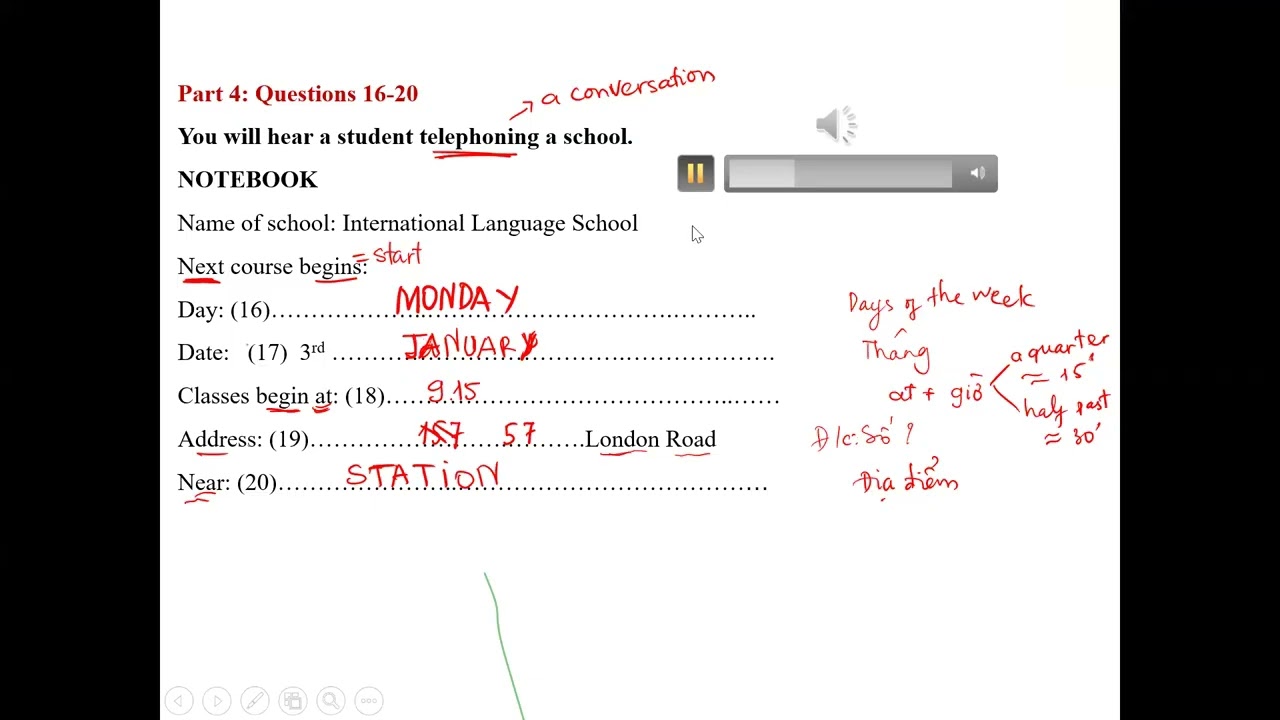 Part 4: Questions 16-20 → a conversation
You will hear a student telephoning a school.
NOTEBOOK
Name of school: International Language School
Next course begins: = start
Day: (16)…………………MONDAY……………………………….………..
Days of the week
Date: (17) 3rd …………JANUARY……………………….…………………….
Tháng
Classes begin at: (18)……9.15………………………………………..……
at + giờ
a quarter
≈ 15'
half past
≈ 30'
Address: (19)……………… 57…….London Road
Đ/c: Số ?
Near: (20)…………STATION…………………………………………
Địa điểm